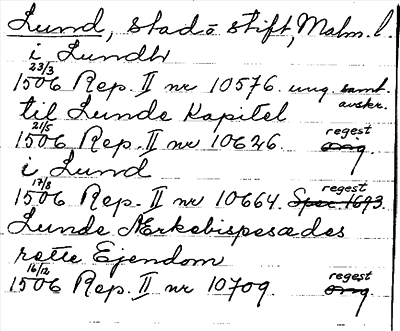 Lund, stad o stift, Malm. l.
i Lundh
23/3
1506 Rep. II nr 10576. ung. samt.
avskr.
til Lunde Kapitel
21/5 regest
1506 Rep. II nr 10626. orig.
i Lund
17/8 regest
1506 Rep. II nr 10664. Spec 1693.
Lunde Ærkebispesædes
rette Ejendom
16/12 regest
1506 Rep. II nr 10709. orig.